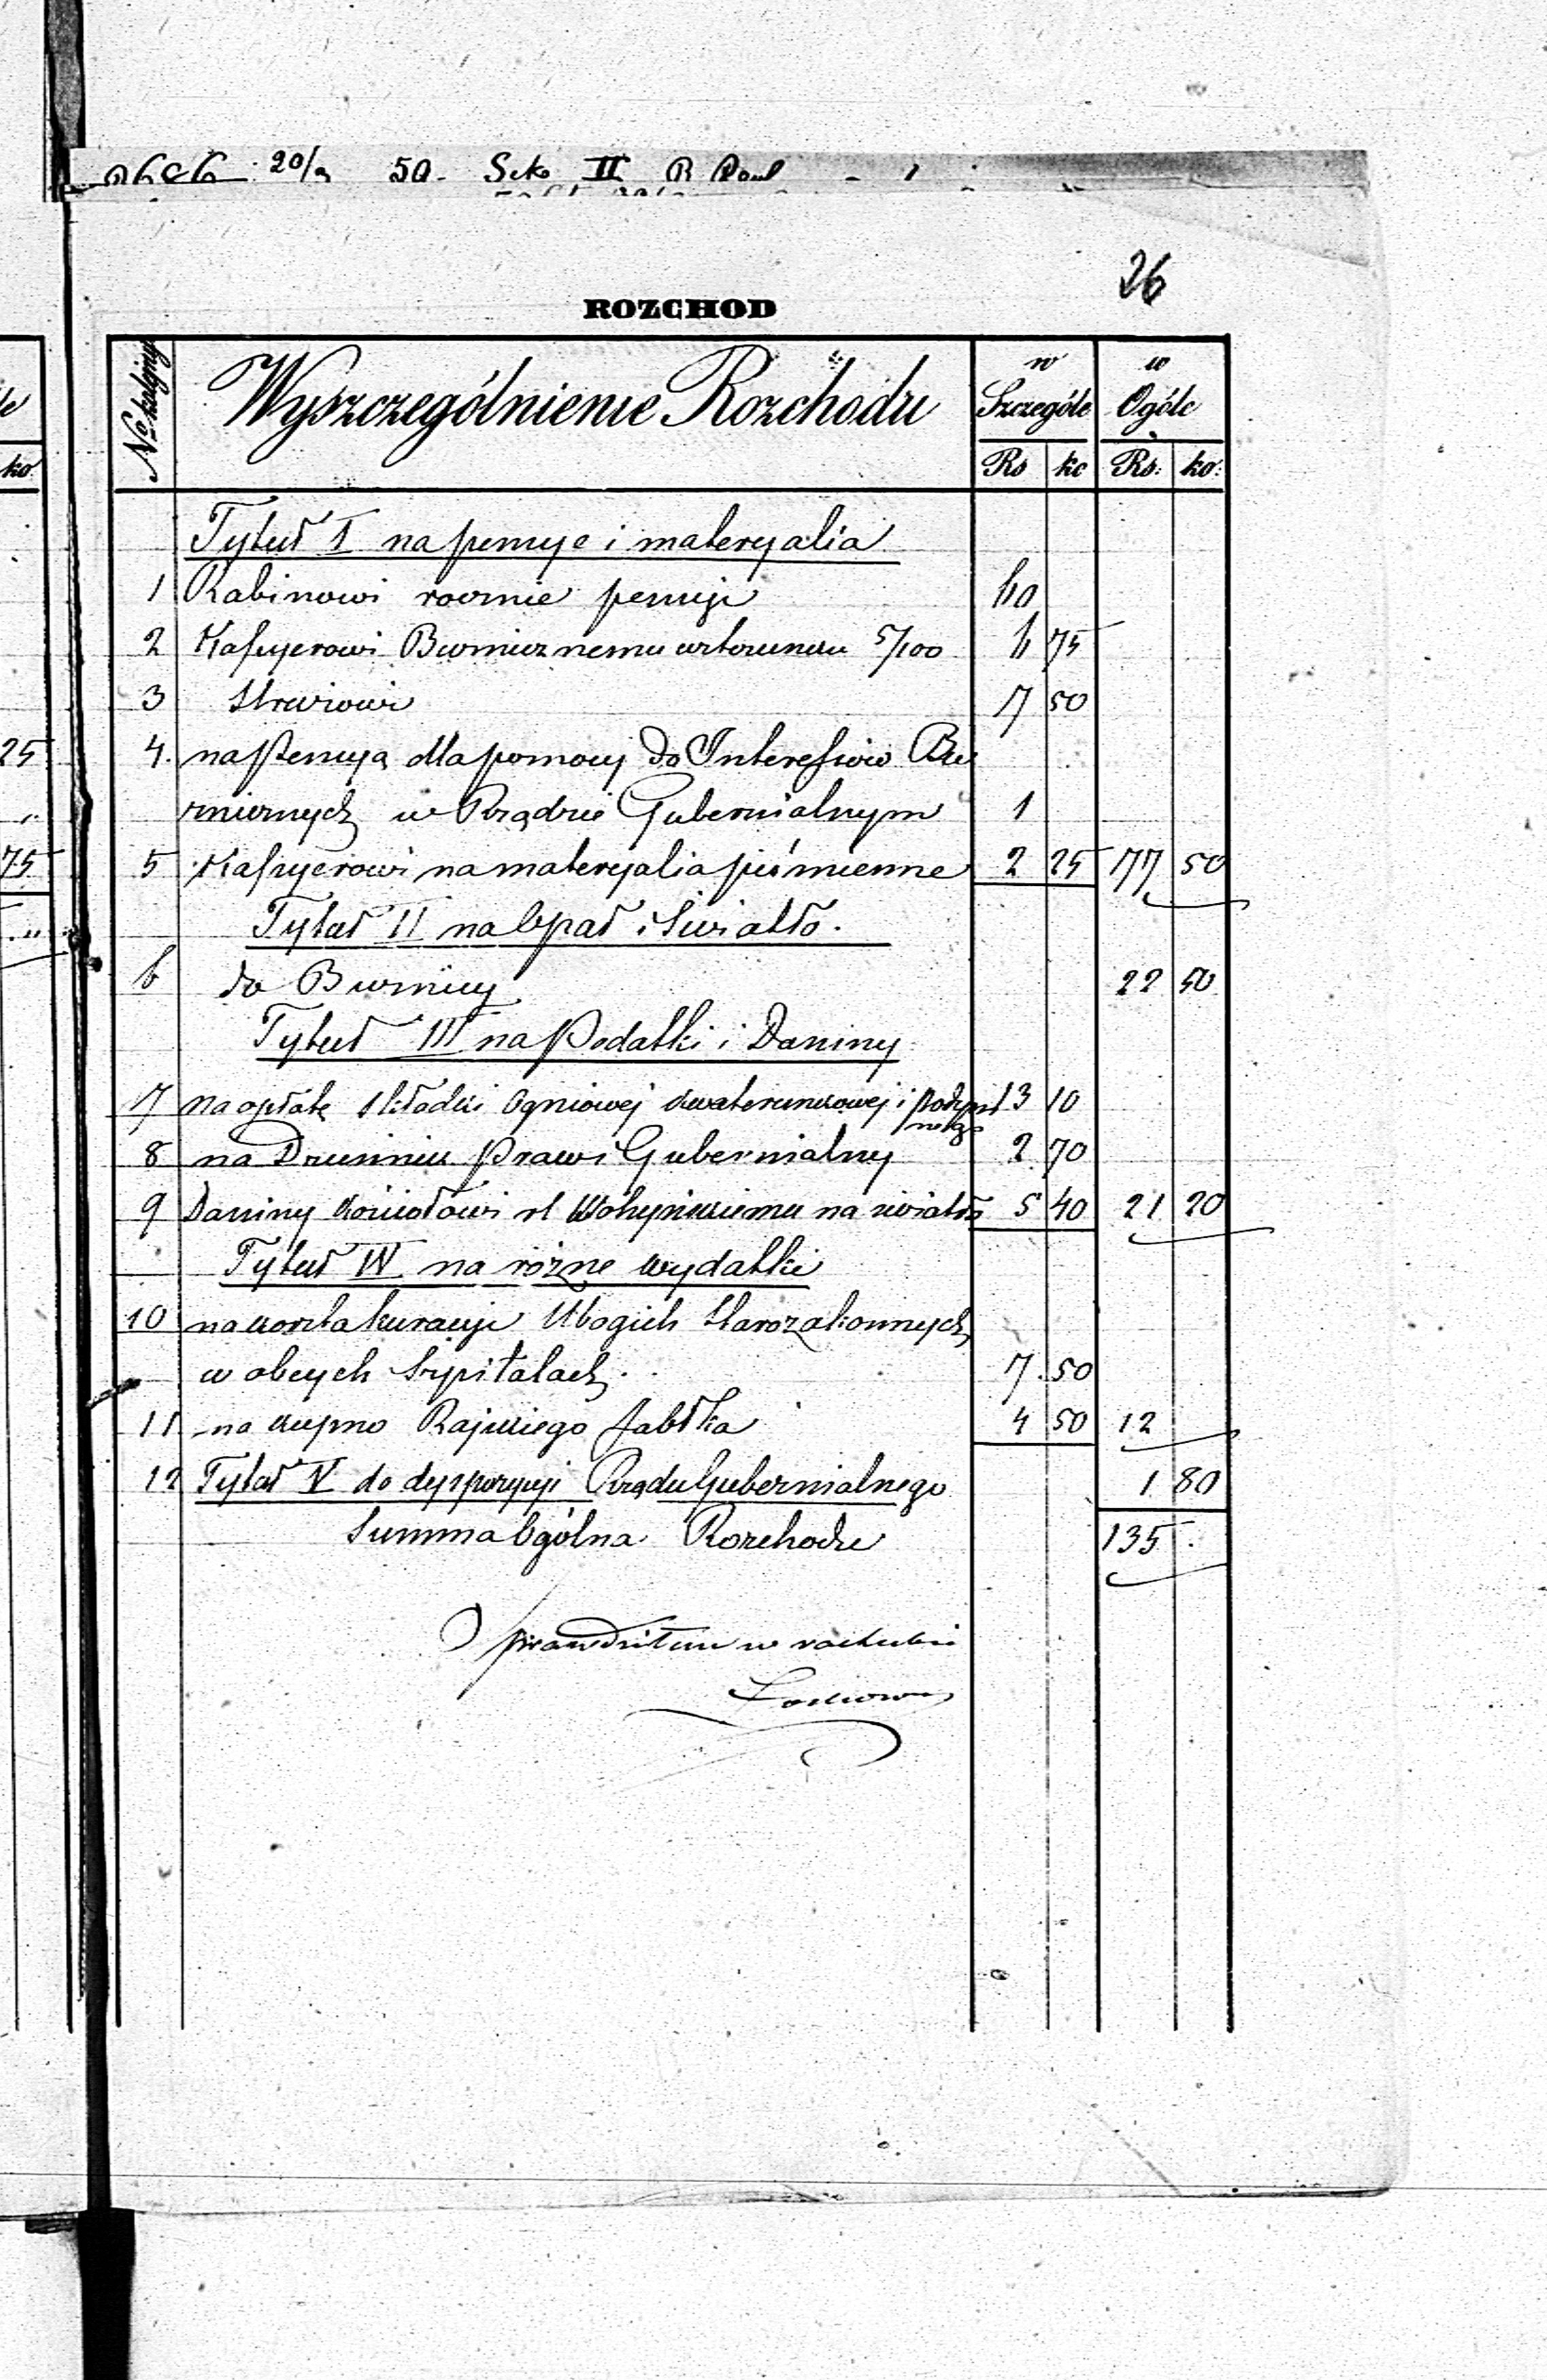 20/9 50. Sek II
26
ROZCHOD
No kolejny
Wyszczególnienie Rozchodu
w Szczególe
w Ogóle
Rs ko Rs: ko:
Tytuł I na pensye i materyalia
1 Rabinowi rocznie pensyi 60
2 Kassyerowi Bużnicznemu wstosunku 5/100 6 75
3 Stróżowi 7 50
4. na Pensyą dla pomocy do Interessów Bu
żnicznych w Rządzie Gubernialnym 1
5 Kassyerowi na materyalia piśmienne 2 25 77 50
Tytuł II na Opał i Światło.
6 do Bużnicy 22 50
Tytuł III na Podatki i Daniny
7 na opłatę składki Ogniowej kwaterunkowej i Podym 13 10
nego
8 na Dziennik Praw i Gubernialny 2 70
9 Daniny kościołowi rł Wohyńskiemu na światło 5 40 21 20
Tytuł IV na różne wydatki
10 na koszta kuracyi Ubogich Starozakonnych
w obcych Szpitalach. 7.50
11 na kupno Rajskiego Jabłka 4 50 12
12 Tytuł V do dyspozycyi Rządu Gubernialnego 1 80
Summa Ogólna Rozchodu 135 .
Sprawdziłem w rachubie